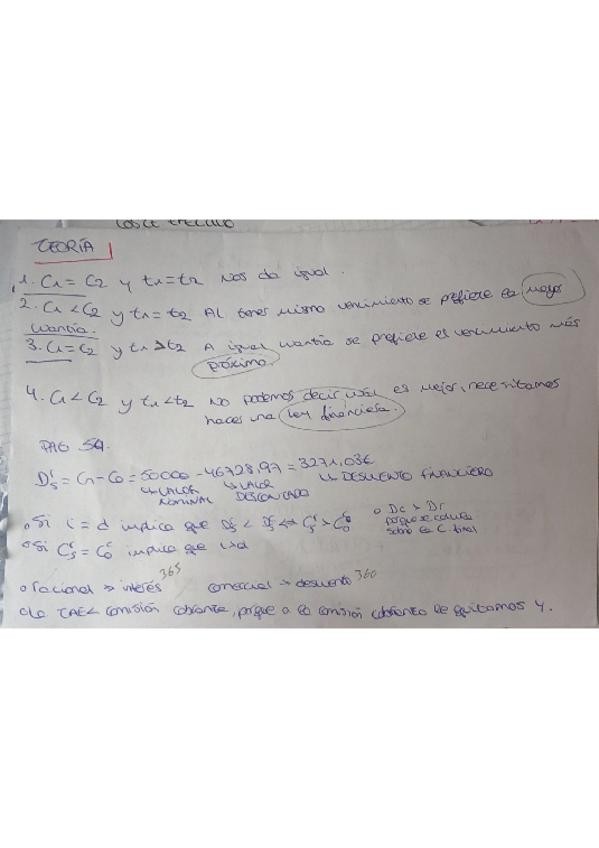 TEORÍA
1. C1 = C2 y t1 = t2 nos da igual.
2. C1 < C2 y t1 = t2 Al tener mismo vencimiento se prefiere la mayor
cuantía.
3. C1 = C2 y t1 > t2 A igual cuantía se prefiere el vencimiento más
próximo.
4. C1 < C2 y t1 < t2 No podemos decir cuál es mejor, necesitamos
hacer una ley financiera.
PAG 54.
Dʳs = Cn - C0 = 50000 - 46728,97 = 3271,03€
↳ VALOR NOMINAL ↳ VALOR DESCONTADO ↳ DESCUENTO FINANCIERO
o Si i = d implica que
o Dc > Dr
porque se calcula
sobre el C. final
o Si implica que i > d
o racional → interés 365 comercial → descuento 360
o la TAE < comisión cobrante, porque a la comisión cobrante le quitamos 4.